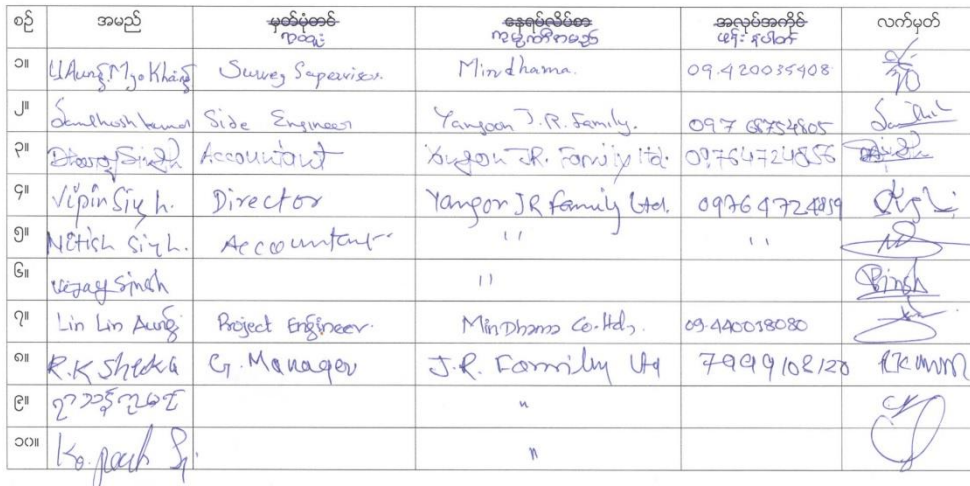 စဉ် အမည် မှတ်ပုံတင် နေရပ်လိပ်စာ အလုပ်အကိုင် လက်မှတ်
ရာထူး ကုမ္ပဏီအမည် ဖုန်းနံပါတ်
၁။ U Aung Myo Khaing Survey Supervisor. Mindhama. 09.420035908
၂။ Side Engineer Yangoon J.R. Family. 097 68754805
၃။ Accountant Yangon JR. Family ltd. 09764724856
၄။ Vipin Sigh. Director Yangon JR Family Ltd. 09764724859
၅။ Nitish Sigh. Accountant " "
၆။ Vijay Singh " Singh
၇။ Lin Lin Aung Project Engineer. MinDhama Co.Ltd, 09.440038080
၈။ R.K Sheka G. Manager J.R. Family Ltd 7999108120
၉။ "
၁၀။ "